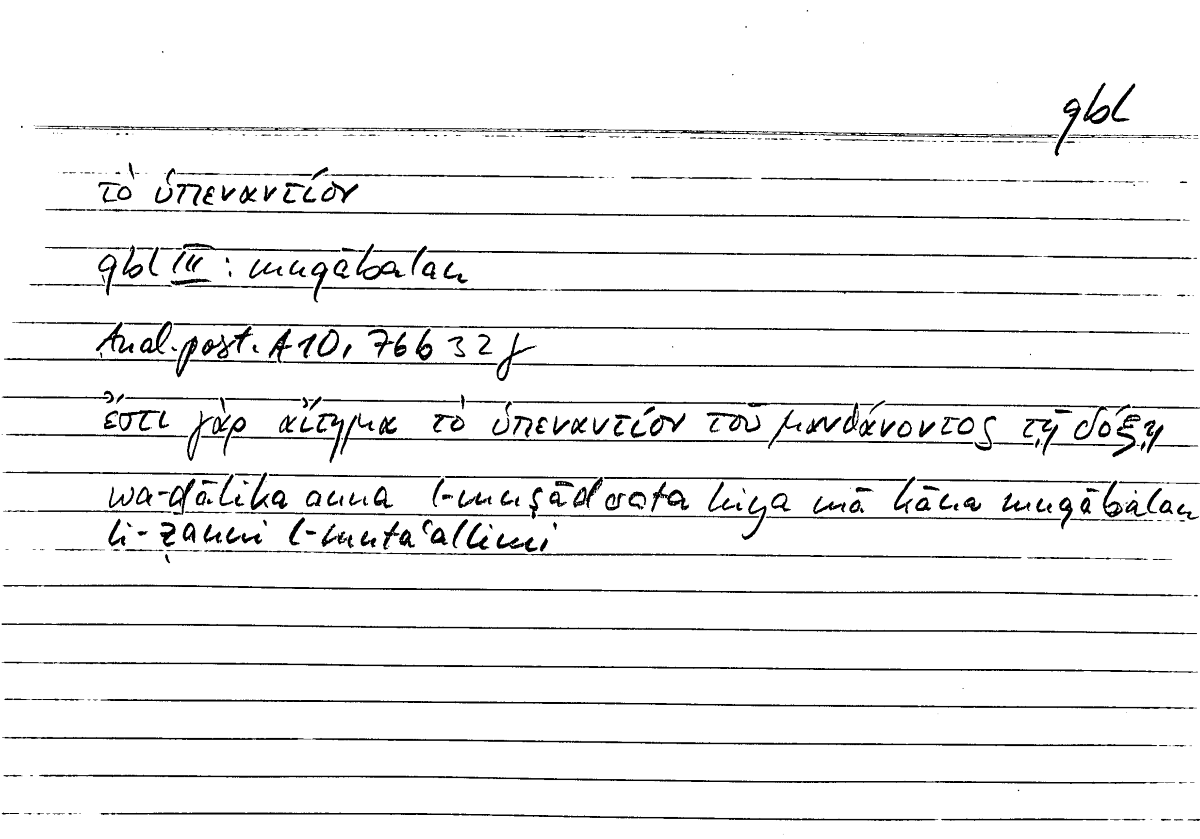 qbl
τὸ ὑπεναντίον
qbl III: muqābalan
Anal. post. A 10, 76 b 32 f
ἔστι γὰρ αἴτημα τὸ ὑπεναντίον τοῦ μανθάνοντος τῇ δόξῃ
wa-ḏālika anna l-muṣādarata hiya mā kāna muqābalan
li-ẓanni l-mutaʿallimi